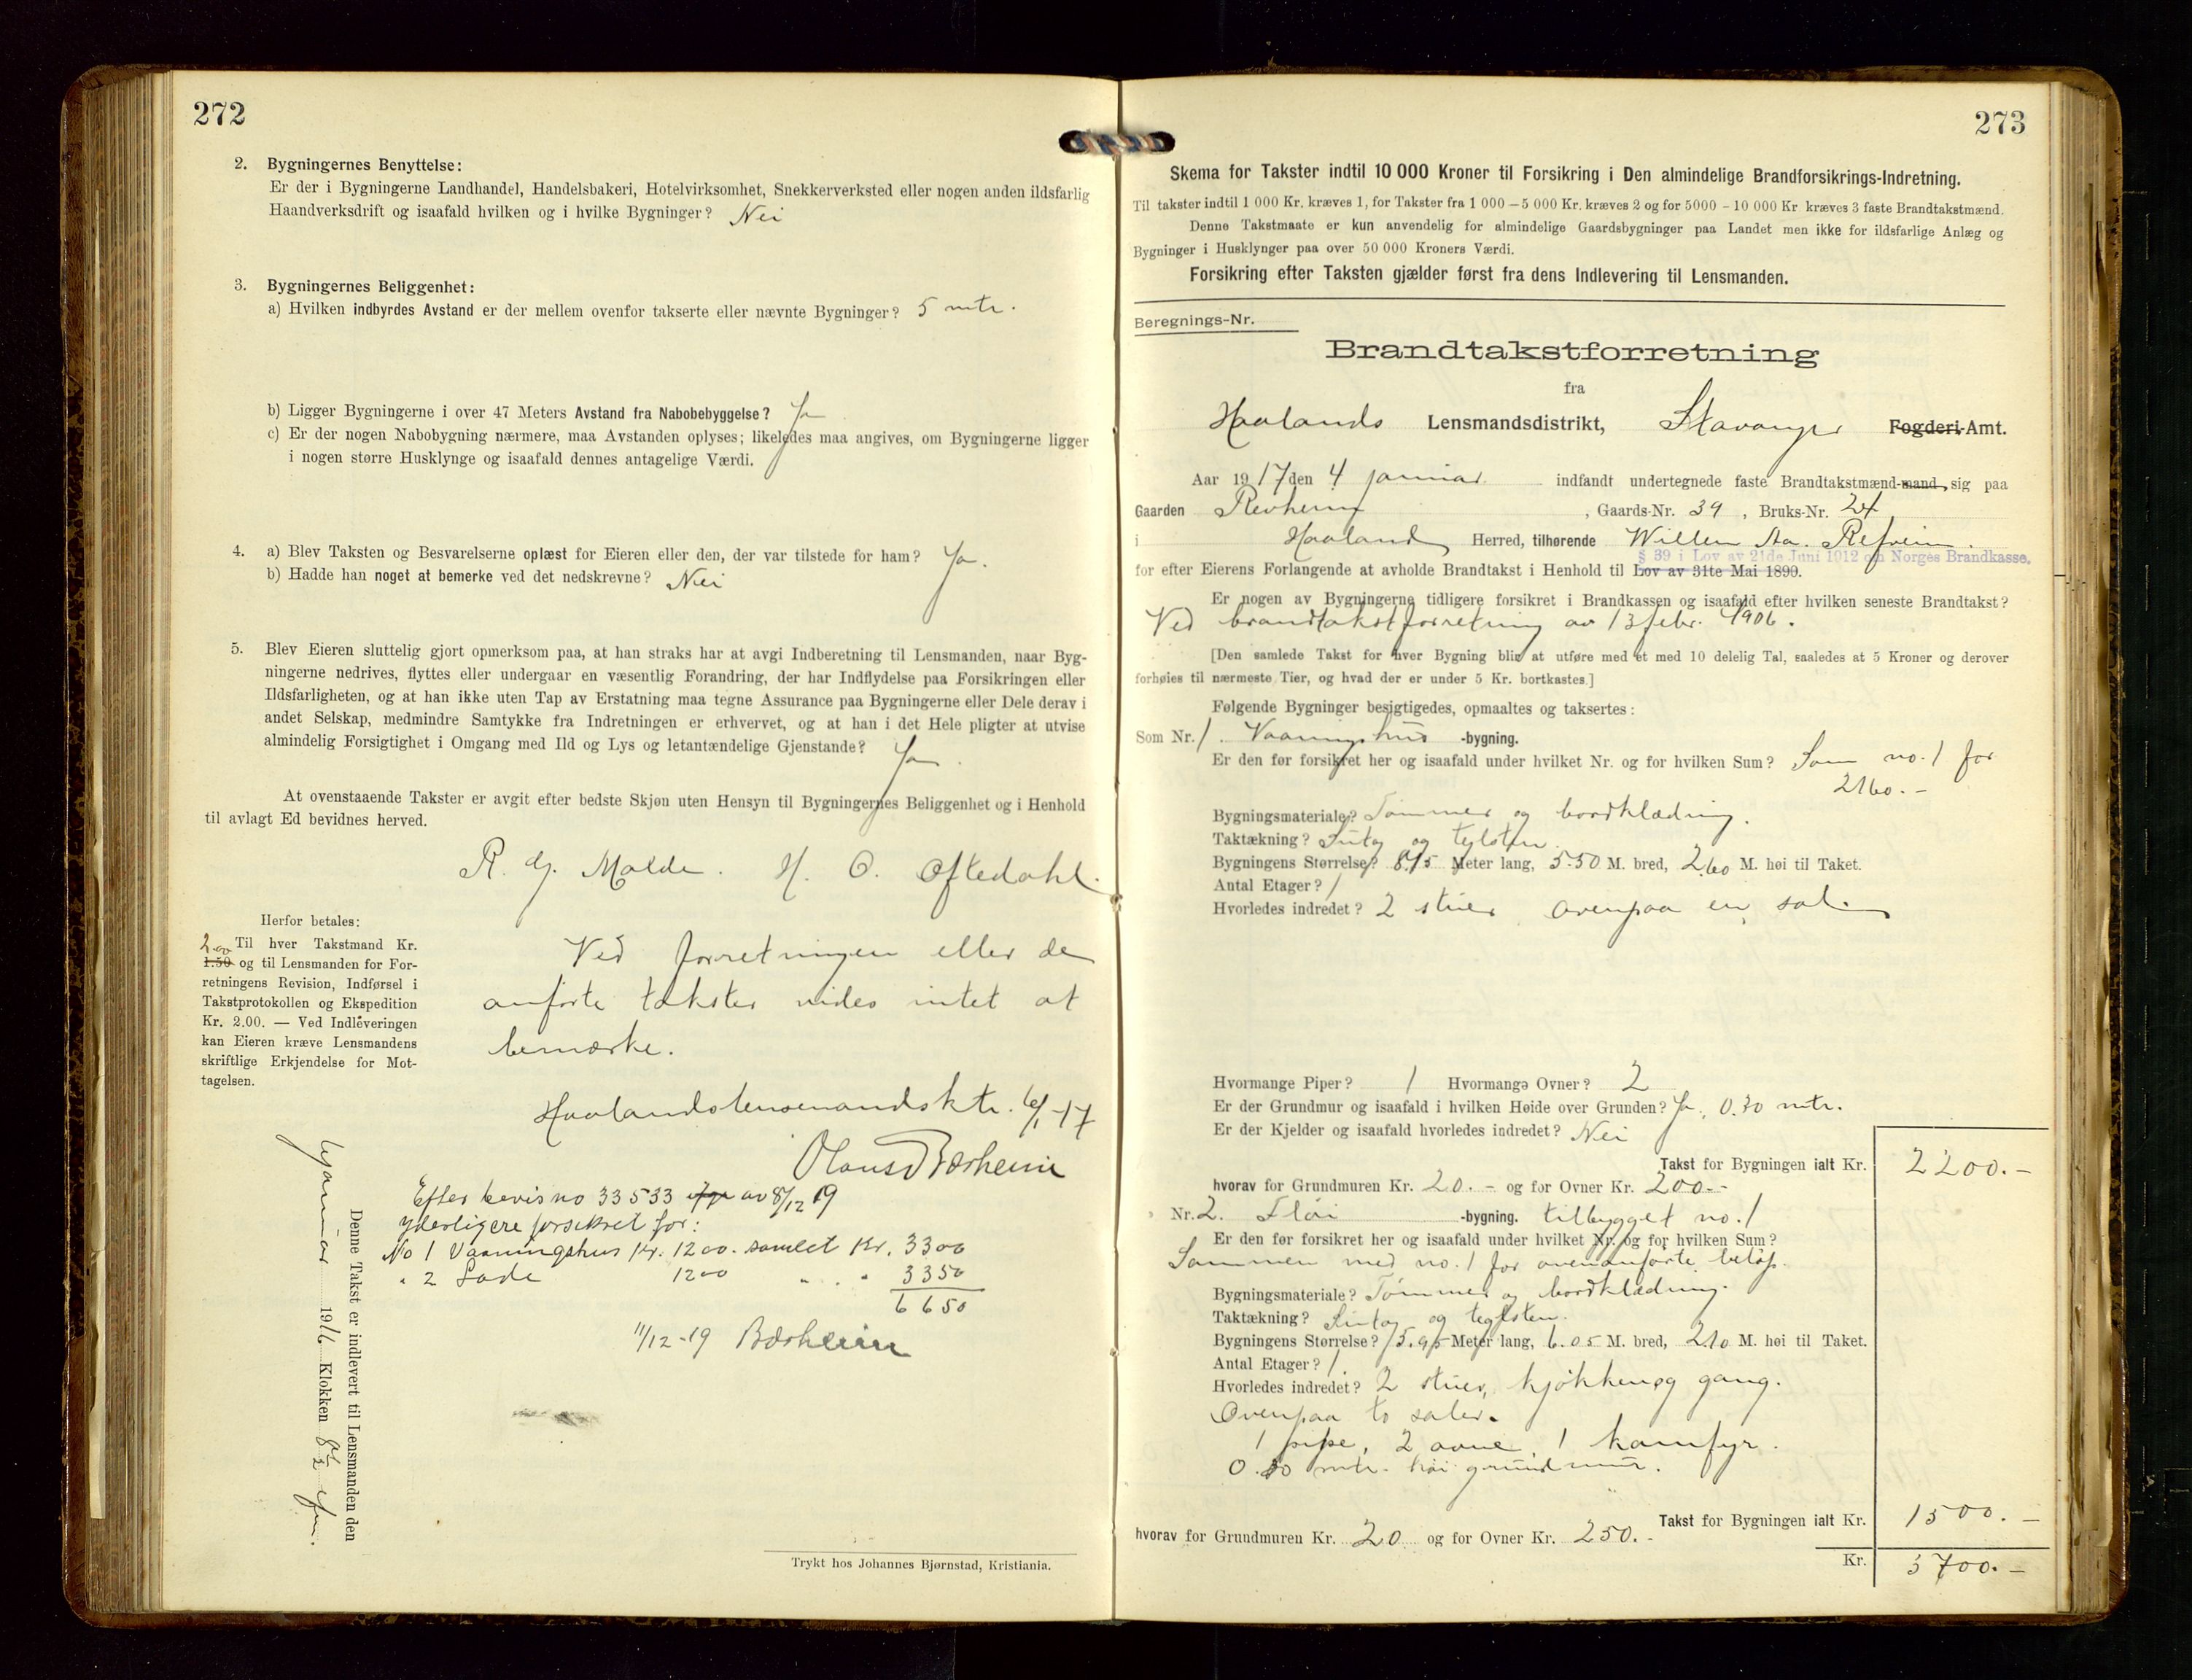 272
2. Bygningernes Benyttelse:
Er der i Bygningerne Landhandel, Handelsbakeri, Hotelvirksomhet, Snekkerverksted eller nogen anden ildsfarlig
Haandverksdrift og isaafald hvilken og i hvilke Bygninger? Nei
3. Bygningernes Beliggenhet:
a) Hvilken indbyrdes Avstand er der mellem ovenfor takserte eller nævnte Bygninger? 5 mtr.
b) Ligger Bygningerne i over 47 Meters Avstand fra Nabobebyggelse? Ja
c) Er der nogen Nabobygning nærmere, maa Avstanden oplyses; likeledes maa angives, om Bygningerne ligger
i nogen større Husklynge og isaafald dennes antagelige Værdi.
4. a) Blev Taksten og Besvarelserne oplæst for Eieren eller den, der var tilstede for ham? Ja.
b) Hadde han noget at bemerke ved det nedskrevne? Nei
5. Blev Eieren sluttelig gjort opmerksom paa, at han straks har at avgi Indberetning til Lensmanden, naar Byg-
ningerne nedrives, flyttes eller undergaar en væsentlig Forandring, der har Indflydelse paa Forsikringen eller
Ildsfarligheten, og at han ikke uten Tap av Erstatning maa tegne Assurance paa Bygningerne eller Dele derav i
andet Selskap, medmindre Samtykke fra Indretningen er erhvervet, og at han i det Hele pligter at utvise
almindelig Forsigtighet i Omgang med Ild og Lys og letantændelige Gjenstande? Ja.
At ovenstaaende Takster er avgit efter bedste Skjøn uten Hensyn til Bygningernes Beliggenhet og i Henhold
til avlagt Ed bevidnes herved.
R. G. Molde. H. O. Oftedahl.
Herfor betales:
2.00 Til hver Takstmand Kr.
1.50 og til Lensmanden for For-
retningens Revision, Indførsel i
Takstprotokollen og Ekspedition
Kr. 2.00. — Ved Indleveringen
kan Eieren kræve Lensmandens
skriftlige Erkjendelse for Mot-
tagelsen.
Ved forretningen eller de
anførte takster vides intet at
bemærke.
Haalandslensmandsktr. 6/1-17
Olaus Bærheim
Efter bevis no 33533 av 8/12 19
yderligere forsikret for:
No 1 Vaaningshus Kr. 1200. samlet Kr. 3300
" 2 Lade 1200 " . " 3350
6650
11/12-19 Bærheim
Denne Takst er indlevert til Lensmanden den
6 januar 1916 Klokken 8 1/2 efm.
Trykt hos Johannes Bjørnstad, Kristiania.
273
Skema for Takster indtil 10 000 Kroner til Forsikring i Den almindelige Brandforsikrings-Indretning.
Til takster indtil 1 000 Kr. kræves 1, for Takster fra 1 000 – 5 000 Kr. kræves 2 og for 5000 – 10 000 Kr kræves 3 faste Brandtakstmænd.
Denne Takstmaate er kun anvendelig for almindelige Gaardsbygninger paa Landet men ikke for ildsfarlige Anlæg og
Bygninger i Husklynger paa over 50 000 Kroners Værdi.
Forsikring efter Taksten gjælder først fra dens Indlevering til Lensmanden.
Beregnings-Nr.
Brandtakstforretning
fra
Haalands Lensmandsdistrikt, Stavanger Fogderi-Amt.
Aar 1917 den 4 januar indfandt undertegnede faste Brandtakstmænd-mand sig paa
Gaarden Revheim, Gaards-Nr. 39, Bruks-Nr. 24
i Haaland Herred, tilhørende Willem Aa. Refheim.
§ 39 i Lov av 21de Juni 1912 om Norges Brandkasse.
for efter Eierens Forlangende at avholde Brandtakst i Henhold til Lov av 31te Mai 1899.
Er nogen av Bygningerne tidligere forsikret i Brandkassen og isaafald efter hvilken seneste Brandtakst?
Ved brandtakstforretning av 13 febr. 1906.
[Den samlede Takst for hver Bygning blir at utføre med et med 10 delelig Tal, saaledes at 5 Kroner og derover
forhøies til nærmeste Tier, og hvad der er under 5 Kr. bortkastes.]
Følgende Bygninger besigtigedes, opmaaltes og taksertes:
Som Nr. 1 Vaaningshus -bygning.
Er den før forsikret her og isaafald under hvilket Nr. og for hvilken Sum? Som no. 1 for
2160.-
Bygningsmateriale? Tømmer og bordklædning.
Taktækning? Sutag og teglsten.
Bygningens Størrelse? 8.15 Meter lang, 5.50 M. bred, 2.60 M. høi til Taket.
Antal Etager? 1
Hvorledes indredet? 2 stuer ovenpaa en sal.
Hvormange Piper? 1 Hvormange Ovner? 2
Er der Grundmur og isaafald i hvilken Høide over Grunden? Ja, 0.30 mtr.
Er der Kjelder og isaafald hvorledes indredet? Nei
Takst for Bygningen ialt Kr. 2200.-
hvorav for Grundmuren Kr. 20.- og for Ovner Kr. 200.-
Nr. 2. Fløi -bygning. tilbygget no. 1
Er den før forsikret her og isaafald under hvilket Nr. og for hvilken Sum?
Sammen med no. 1 for ovenanførte beløp.
Bygningsmateriale? Tømmer og bordklædning.
Taktækning? Sutag og teglsten.
Bygningens Størrelse? 5.95 Meter lang, 6.05 M. bred, 2.10 M. høi til Taket.
Antal Etager? 1.
Hvorledes indredet? 2 stuer, kjøkken og gang.
Ovenpaa to saler.
1 pipe, 2 ovne, 1 komfyr.
0.30 mtr. høi grundmur.
Takst for Bygningen ialt Kr. 1500.-
hvorav for Grundmuren Kr. 20 og for Ovner Kr. 250.-
Kr. 3700.-